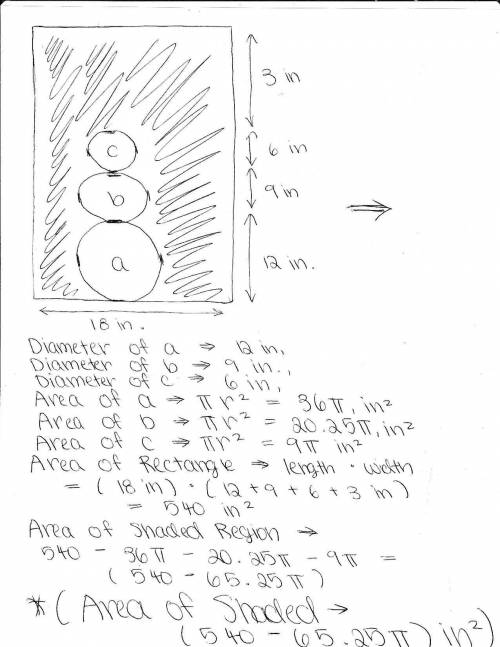 3 in
c
6 in
b
9 in
a
12 in.
18 in.
Diameter of a → 12 in,
Diameter of b → 9 in.,
Diameter of c → 6 in,
Area of a → πr² = 36π, in²
Area of b → πr² = 20.25π, in²
Area of c → πr² = 9π in²
Area of Rectangle → length · width
= (18 in) · (12 + 9 + 6 + 3 in)
= 540 in²
Area of Shaded Region →
540 - 36π - 20.25π - 9π =
(540 - 65.25π)
*(Area of Shaded →
(540 - 65.25π) in²)